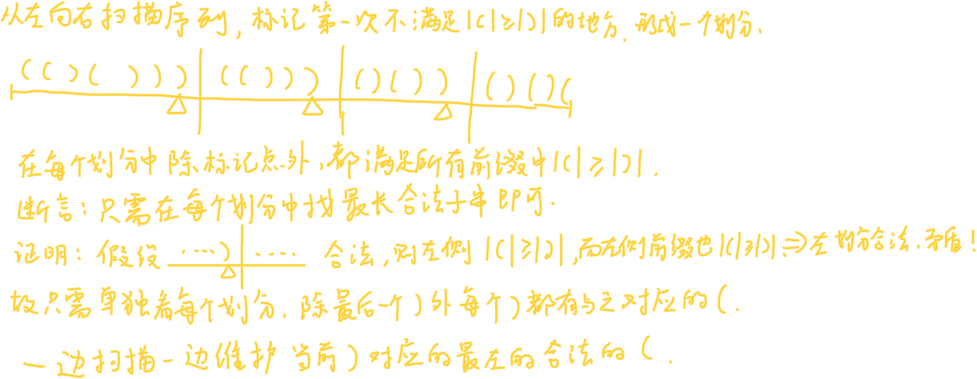 从左向右扫描序列,标记第一次不满足|(|≥|)|的地方,形成一个划分.
(()()))|(()))|()())|()()(
在每个划分中除标记点外,都满足所有前缀中|(|≥|)|.
断言:只需在每个划分中找最长合法子串即可.
证明:假设 ····)|···· 合法,则左侧|(|≥|)|,而左侧前缀也|(|≥|)|⇒左划分合法.矛盾!
故只需单独看每个划分.除最后一个)外每个)都有与之对应的(.
一边扫描一边维护当前)对应的最左的合法的(.